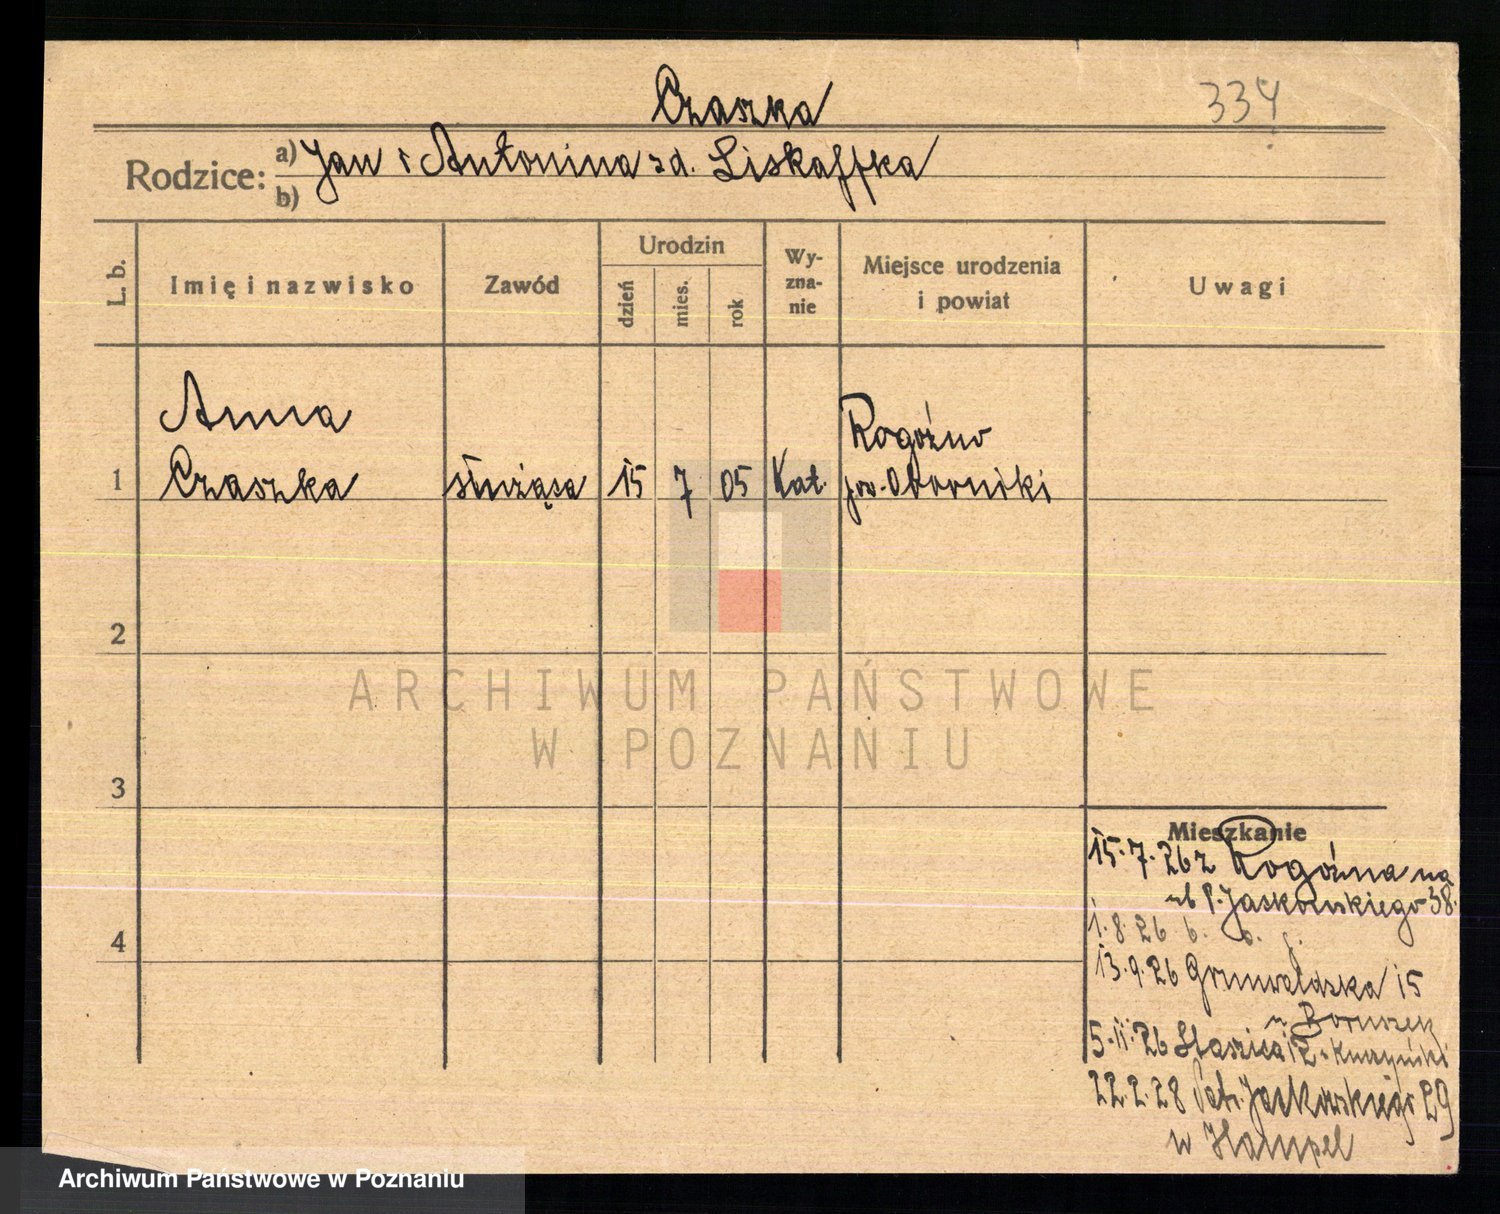 Czaszka
334
Rodzice:
a) Jan i Antonina zd. Liskaffka
b)
L. b.
Imię i nazwisko
Zawód
Urodzin
dzień
mies.
rok
Wy-
zna-
nie
Miejsce urodzenia
i powiat
Uwagi
Anna
1 Czaszka służąca 15 7 05 Kat.
Rogoźno
pow. Oborniki
2
3
4
ARCHIWUM PAŃSTWOWE
W POZNANIU
Mieszkanie
15.7.26 z Rogoźna na
P. Jaskowskiego 38.
1.8.26
13.9.26 Grunwaldzka 15
5.11.26 Staszica 12
22.2.28 Jackowskiego 29
w Hampel
Archiwum Państwowe w Poznaniu